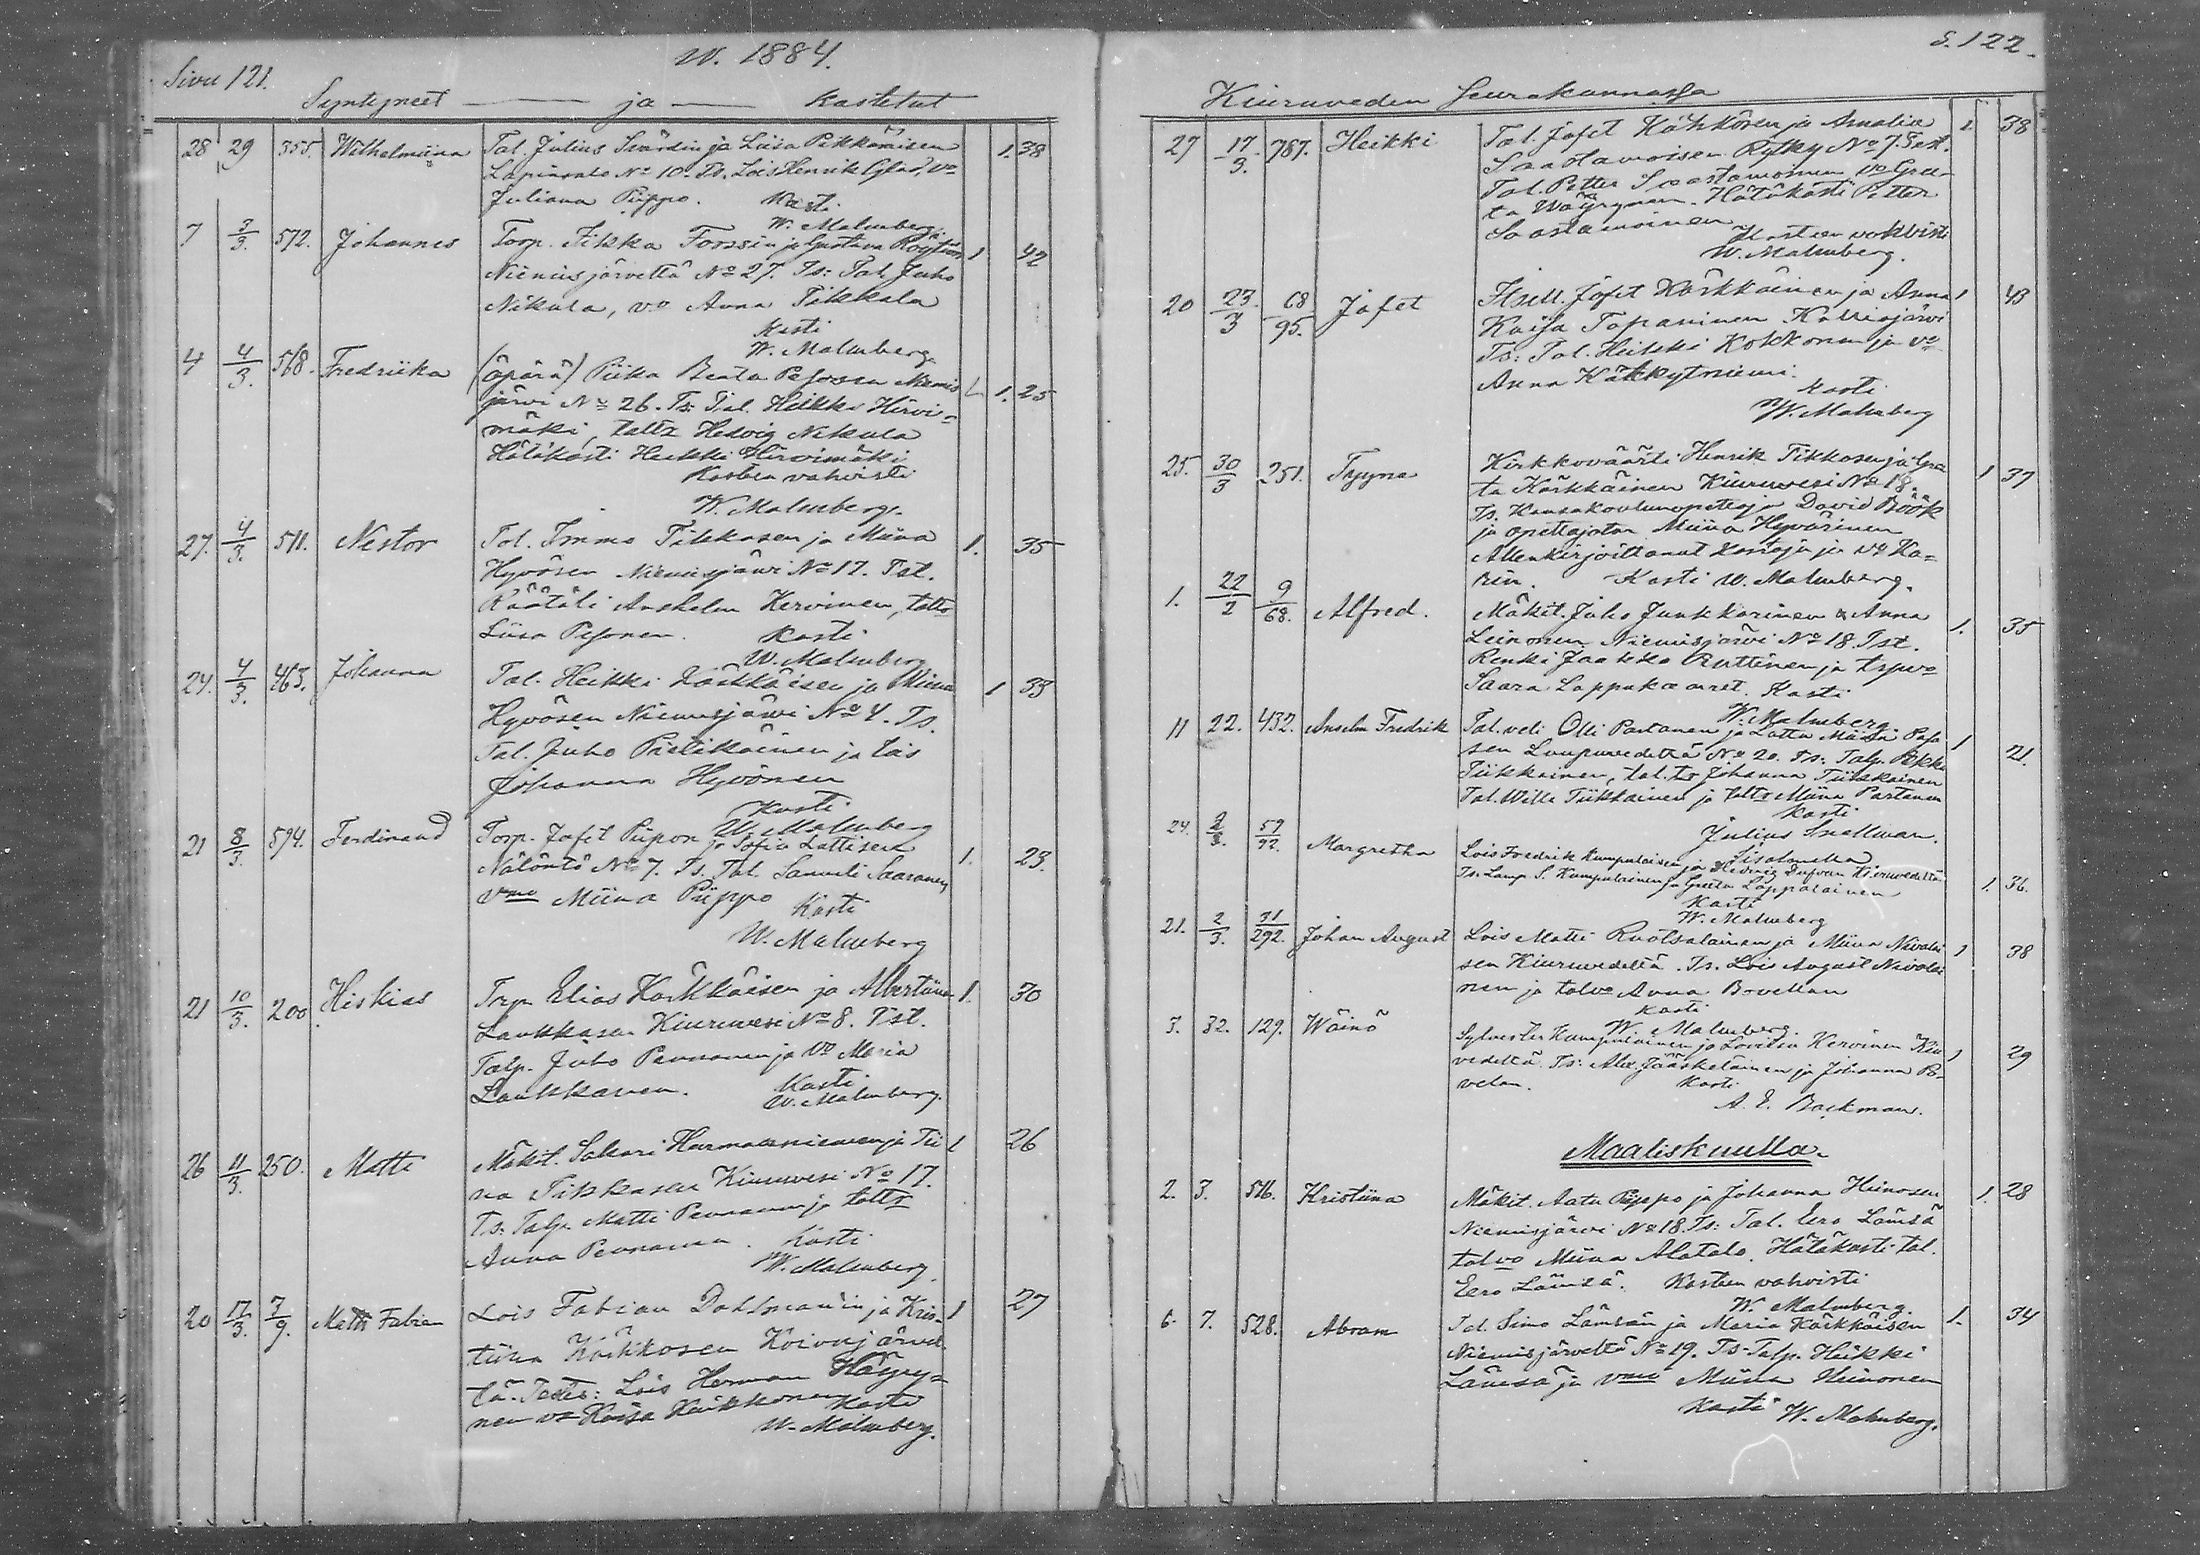 Sivu 121.
w. 1884.
Syntyneet ja kastetut
28 29 355. Wilhelmiina Tal. Julius Svärdin ja Liisa Pikkaraisen 1. 38
Lapinsalo No 10. Ts. Lois Henrik Glad, vo
Juliana Piippo. Kasti
W. Malmberg.
7 3/3. 572. Johannes Torp. Pekka Forssin ja Gustava 1 42
Niemisjärveltä No 27. Ts: Tal. Juho
Nikula, vo Anna Tikkala
Kasti
W. Malmberg.
4 4/3. 568. Fredriika (äpärä) Piika Beata Pesosen Niemis 1. 25
järvi No 26. Ts: Tal. Heikki Hirvi-
mäki, taltr Hedvig Nikula
Hätäkasti Heikki Hirvimäki
Kasteen vahvisti
W. Malmberg.
27. 4/3. 511. Nestor Tal. Immo Tikkasen ja Miina 1. 35
Hyvösen Niemisjärvi No 17. Tst.
Räätäli Anshelm Kervinen, taltr
Liisa Pesonen. Kasti
W. Malmberg
24. 4/3. 463. Johanna Tal. Heikki Kärkkäisen ja Miina 1 33
Hyvösen Niemisjärvi No 4. Ts.
Tal. Juho Pielikäinen ja lois
Johanna Hyvönen
Kasti
W. Malmberg
21 8/3. 594. Ferdinand Torp. Jafet Piipon ja Sofia Lattisen
Näläntö No 7. Ts. Tal. Samuli Saaranen, 1. 23.
vmo Miina Piippo
Kasti
W. Malmberg
21 10/3. 200. Hiskias Trp. Elias Kärkkäisen ja Albertiina 1. 30
Laukkasen Kiuruvesi No 8. Tst.
Talp. Juho Pennanen ja vo Maria
Laukkanen. Kasti
W. Malmberg.
26 11/3. 250. Matti Mäkit. Sakari Harmaanniemen ja Tii 1 26
na Tikkasen Kiuruvesi No 17.
Ts: Talp. Matti Pennanen ja taltr
Anna Pennanen. Kasti
W. Malmberg.
20 17/3. 7/9. Matts Fabian Lois Fabian Dahlman'in ja Kris- 1 27
tiina Kärkkösen Koivujärvel
tä. Todis: Lois Herman Häyry-
nen vo Kaisa Kärkkönen Kasti
W. Malmberg.
S. 122.
Kiuruveden Seurakunnassa
27 17/3. 787. Heikki Tal. Jafet Kähkösen ja Amalia 1. 38
Saastamoisen Rytky No 7. Tst.
Tal. Petter Saastamoinen vo Gree-
ta Wäyrynen. Hätäkasti Petter
Saastamoinen
Kasteen vahvisti
W. Malmberg.
20 23/3 68/95. Jafet Itsell. Jafet Kärkkäinen ja Anna 1 43
Kaisa Tapaninen Kalliojärvi
Ts: Tal. Heikki Kokkonen ja vo
Anna Kätkytniemi.
Kasti
W. Malmberg
25. 30/3 251. Tyyne Kirkkoväärti Henrik Tikkasen ja Gree 1 37
ta Kärkkäinen Kiuruvesi No 18.
Ts. Kansakoulunopettaja David Böök
ja opettajatar Miina Hyvärinen
Allenkirjoittanut Kastaja ja vo Ka-
rin. Kasti W. Malmberg.
1. 22/2 9/68. Alfred. Mäkit. Juho Junkkarinen & Anna 1. 35
Leinonen Niemisjärvi No 18. Tst.
Renki Jaakko Ruttinen ja
Saara Lappakaaret. Kasti
W. Malmberg.
11 22. 432. Anselm Fredrik Tal. veli Olli Partanen ja Lotta Maria Peso 1 21.
sen Luupuvedeltä No 20. Ts: Talp. Pekka
Tiikkainen, tal. tr Johanna Tiikkainen
Tal. Wille Tiikkainen ja taltr Miina Partanen
Kasti
Julius Snellman.
Iisalmella
24. 2/3. 59/92. Margretha Lois Fredrik Kumpulaisen ja Hedvig Dufvan Kiuruvedeltä
Ts: Lamp. S. Kumpulainen ja Greta Lappalainen 1. 36.
Kasti
W. Malmberg
21. 2/3. 31/292. Johan August Lois Matti Ruotsalainen ja Miina Nivalai 1 38
sen Kiuruvedeltä. Ts. Lois August Nivalai
nen ja talvo Anna Bovellan
Kasti
W. Malmberg.
3. 22. 129. Wäinö Sylvester Kumpulainen ja Lovisa Kervinen Kiu 1 29
vedeltä. Ts: Alex. Jääskeläinen ja Johanna Bo-
velan. Kasti
A. E. Backman.
Maaliskuulla.
2. 3. 516. Kristiina Mäkit. Aatu Piippo ja Johanna Huinosen 1. 28
Niemisjärvi No 18. Ts: Tal. Eero Lämsä
talvo Miina Alatalo. Hätäkasti tal.
Eero Lämsä. Kasteen vahvisti
W. Malmberg.
6. 7. 528. Abram Tal. Simo Lämsän ja Maria Kärkkäisen 1. 34
Niemisjärveltä No 19. Ts. Talp. Heikki
Lämsä ja vmo Miina Huinonen
Kasti W. Malmberg.